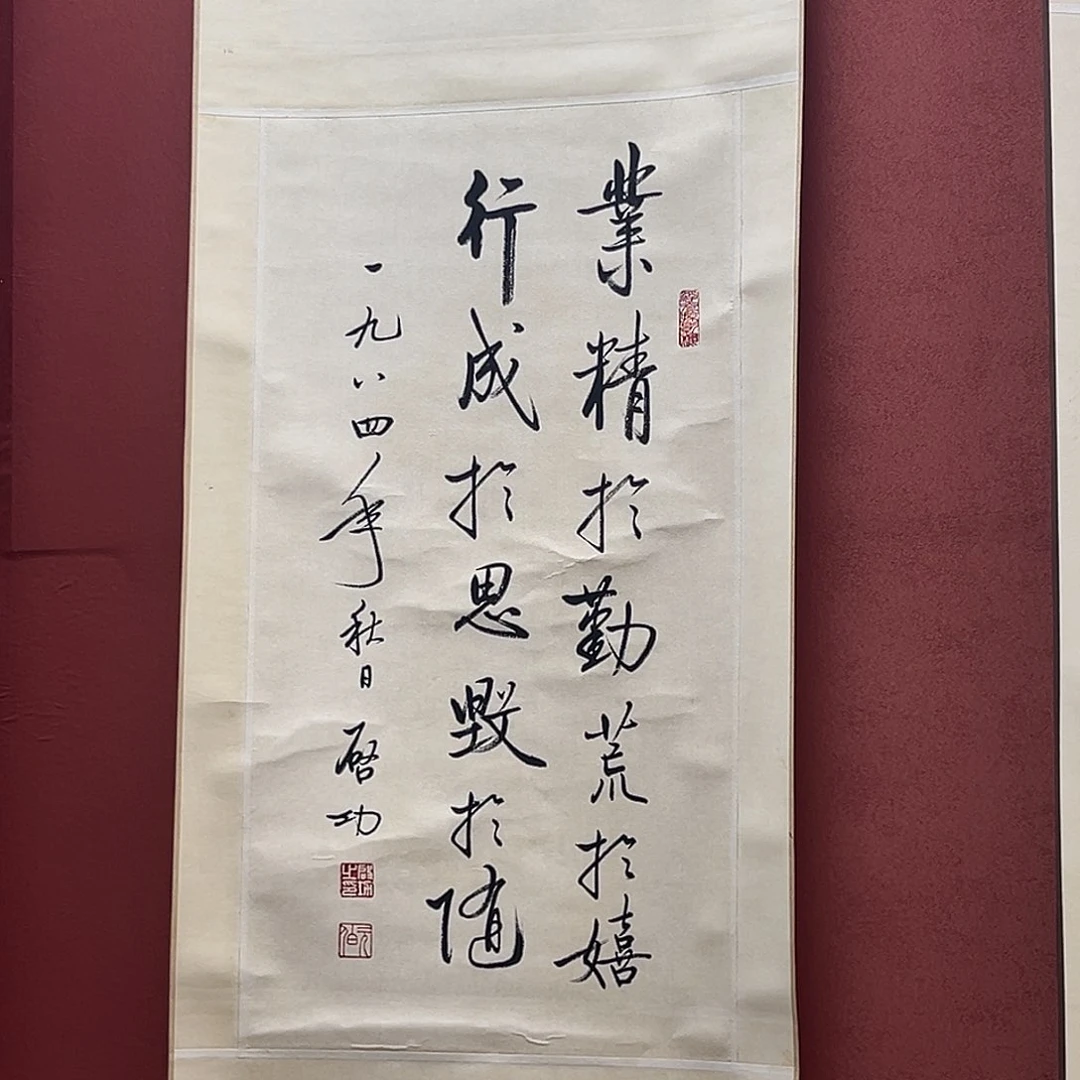 業精於勤荒於嬉
行成於思毀於隨
一九八四年秋日 啓功